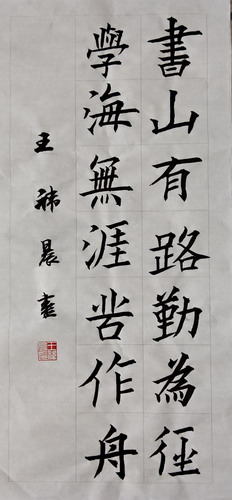 書山有路勤為徑
學海無涯苦作舟
王祎晨書